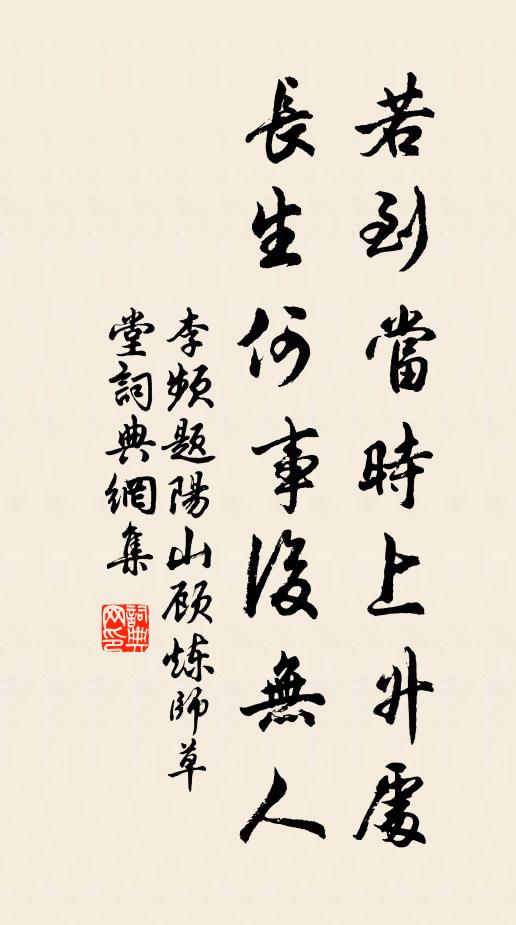 若到當時上升處
長生何事後無人
李頻題陽山顧煉師草
堂詞典網集
詞典网印